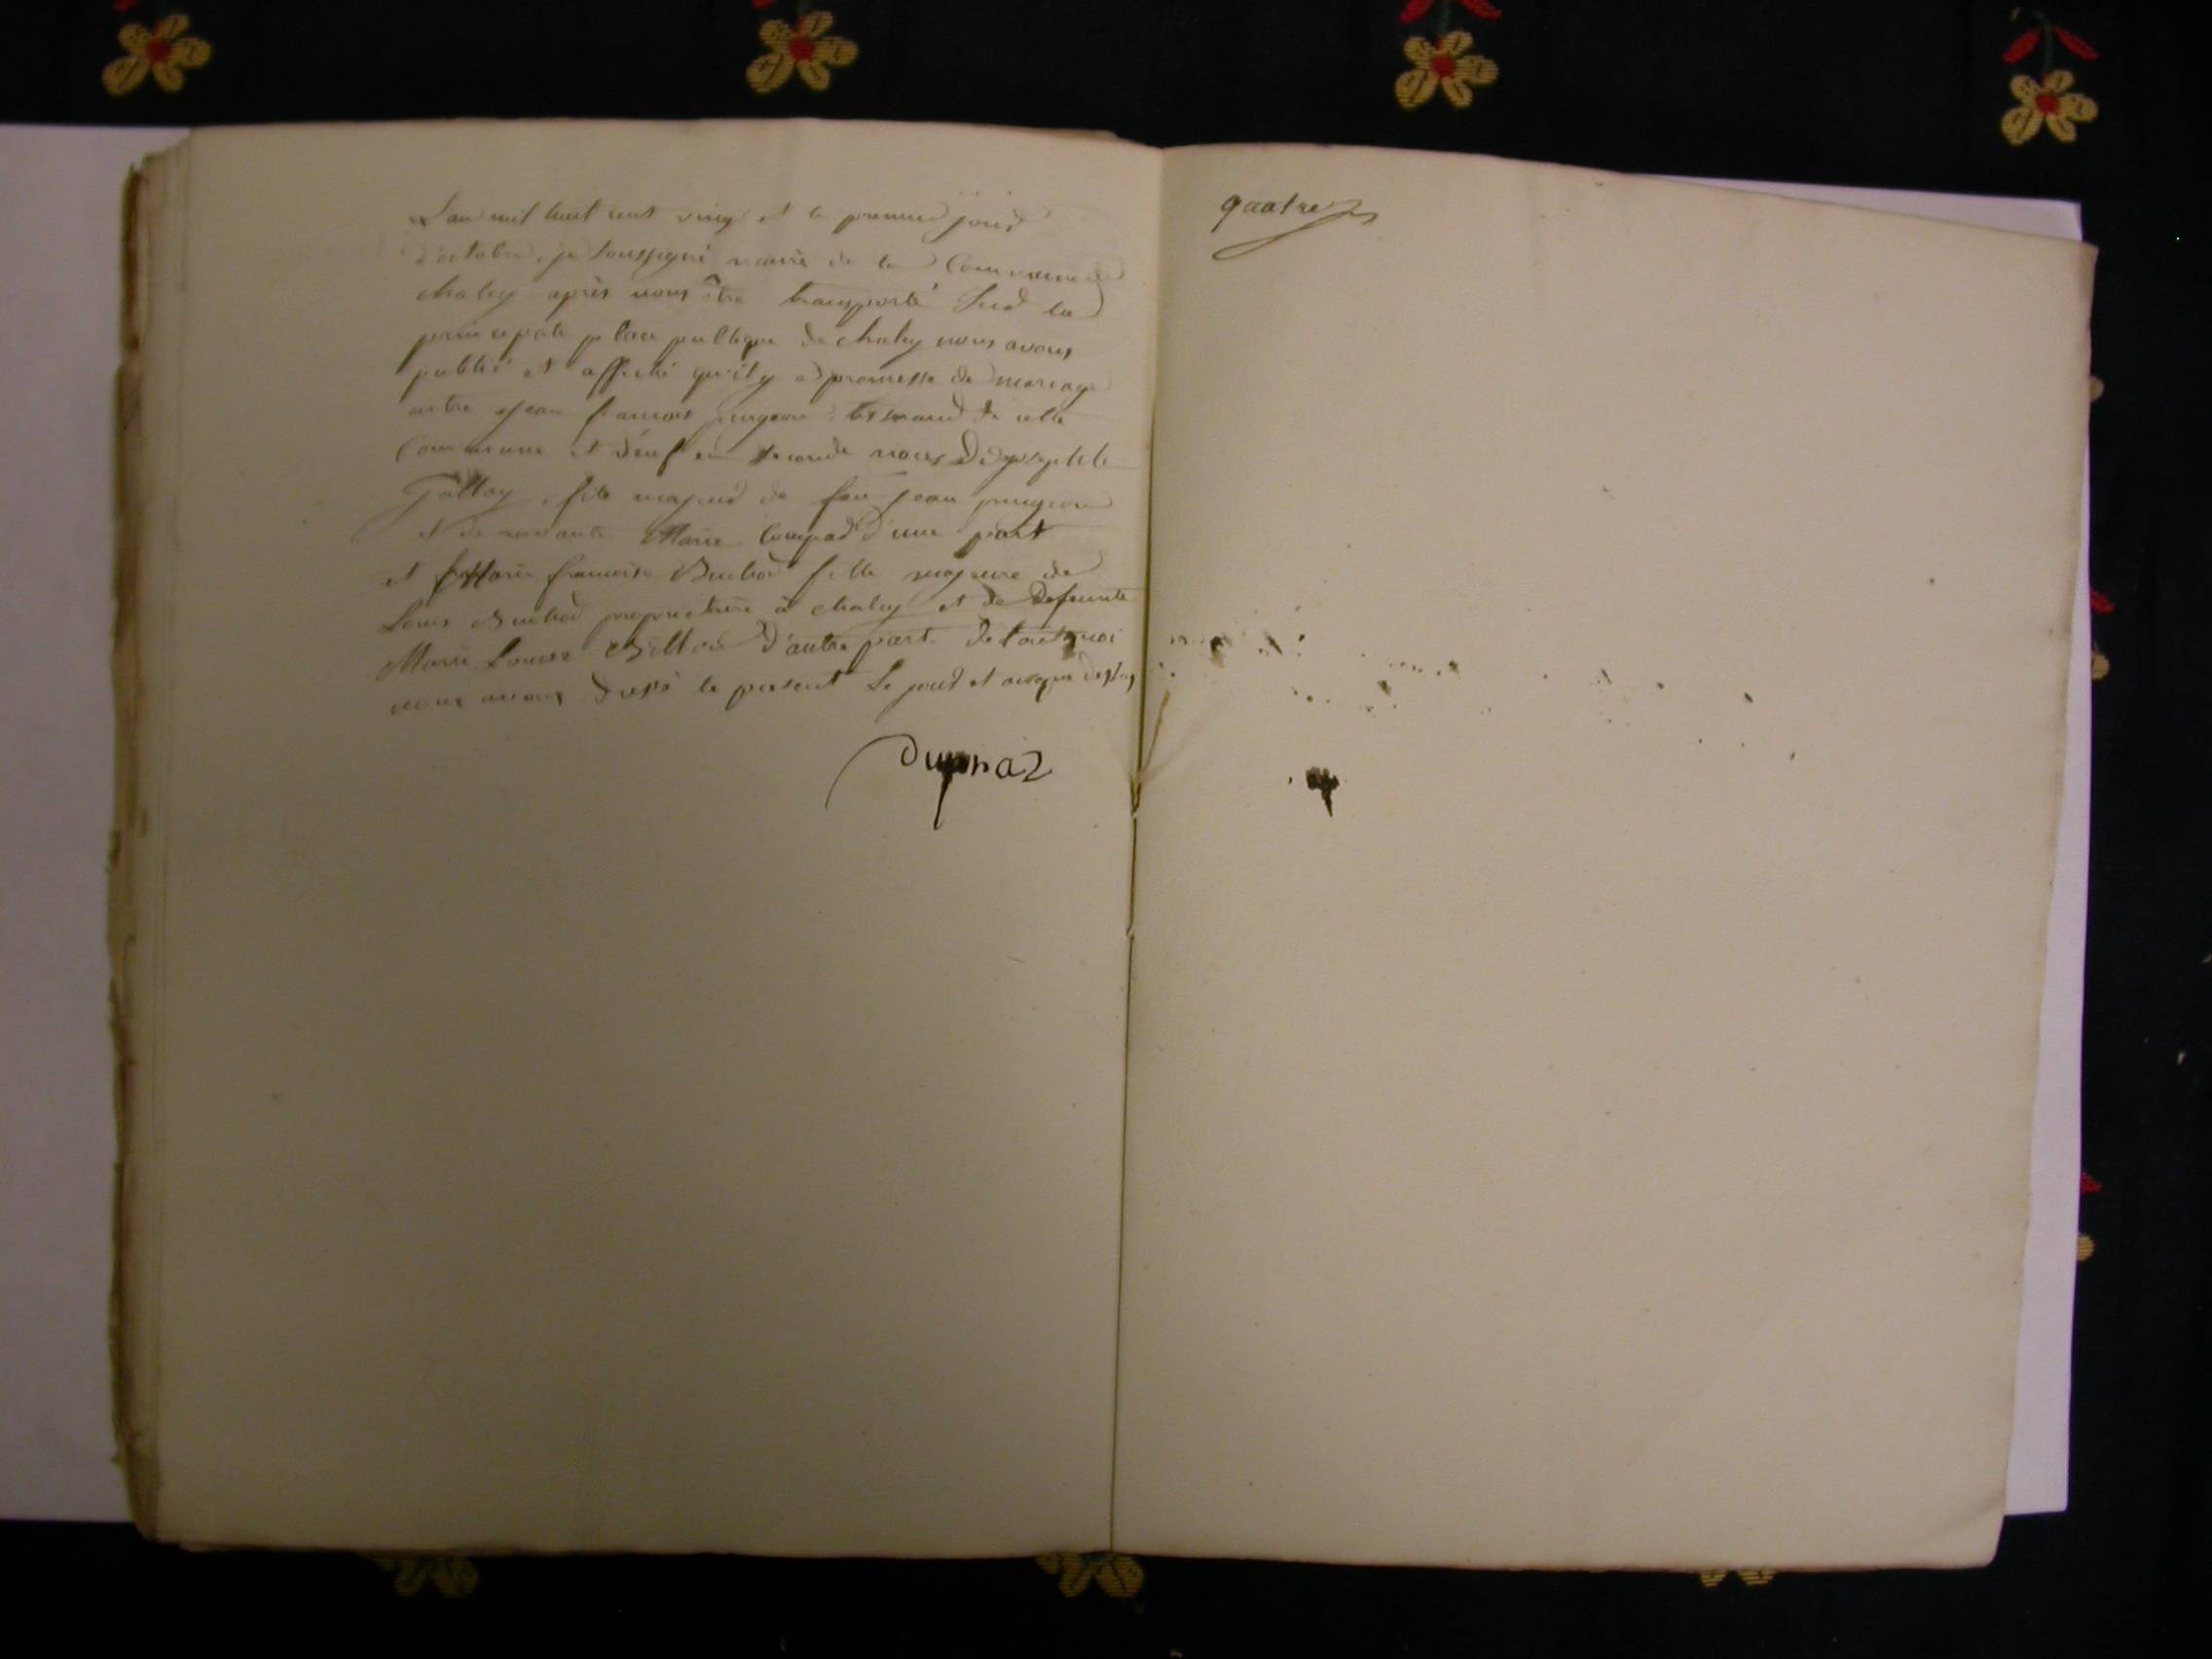 L'an mil huit cent vingt et le premier jour
d'octobre, je soussigné maire de la Commune de
chaley après nous être transporté sur la
principale place publique de chaley nous avons
publié et affiché qu'il y a promesse de mariage
entre jean francois pingeon tisserand de cette
Commune et veuf en seconde noces de josephte
Tallay, fils majeur de feu jean pingeon
et de vivante Marie d'une part
et Marie francoise fille majeure de
Louis propriétaire à chaley et de defeunte
Marie Louise d'autre part. de tout quoi
nous avons dressé le present le jour et an que dessus
dupraz
quatre